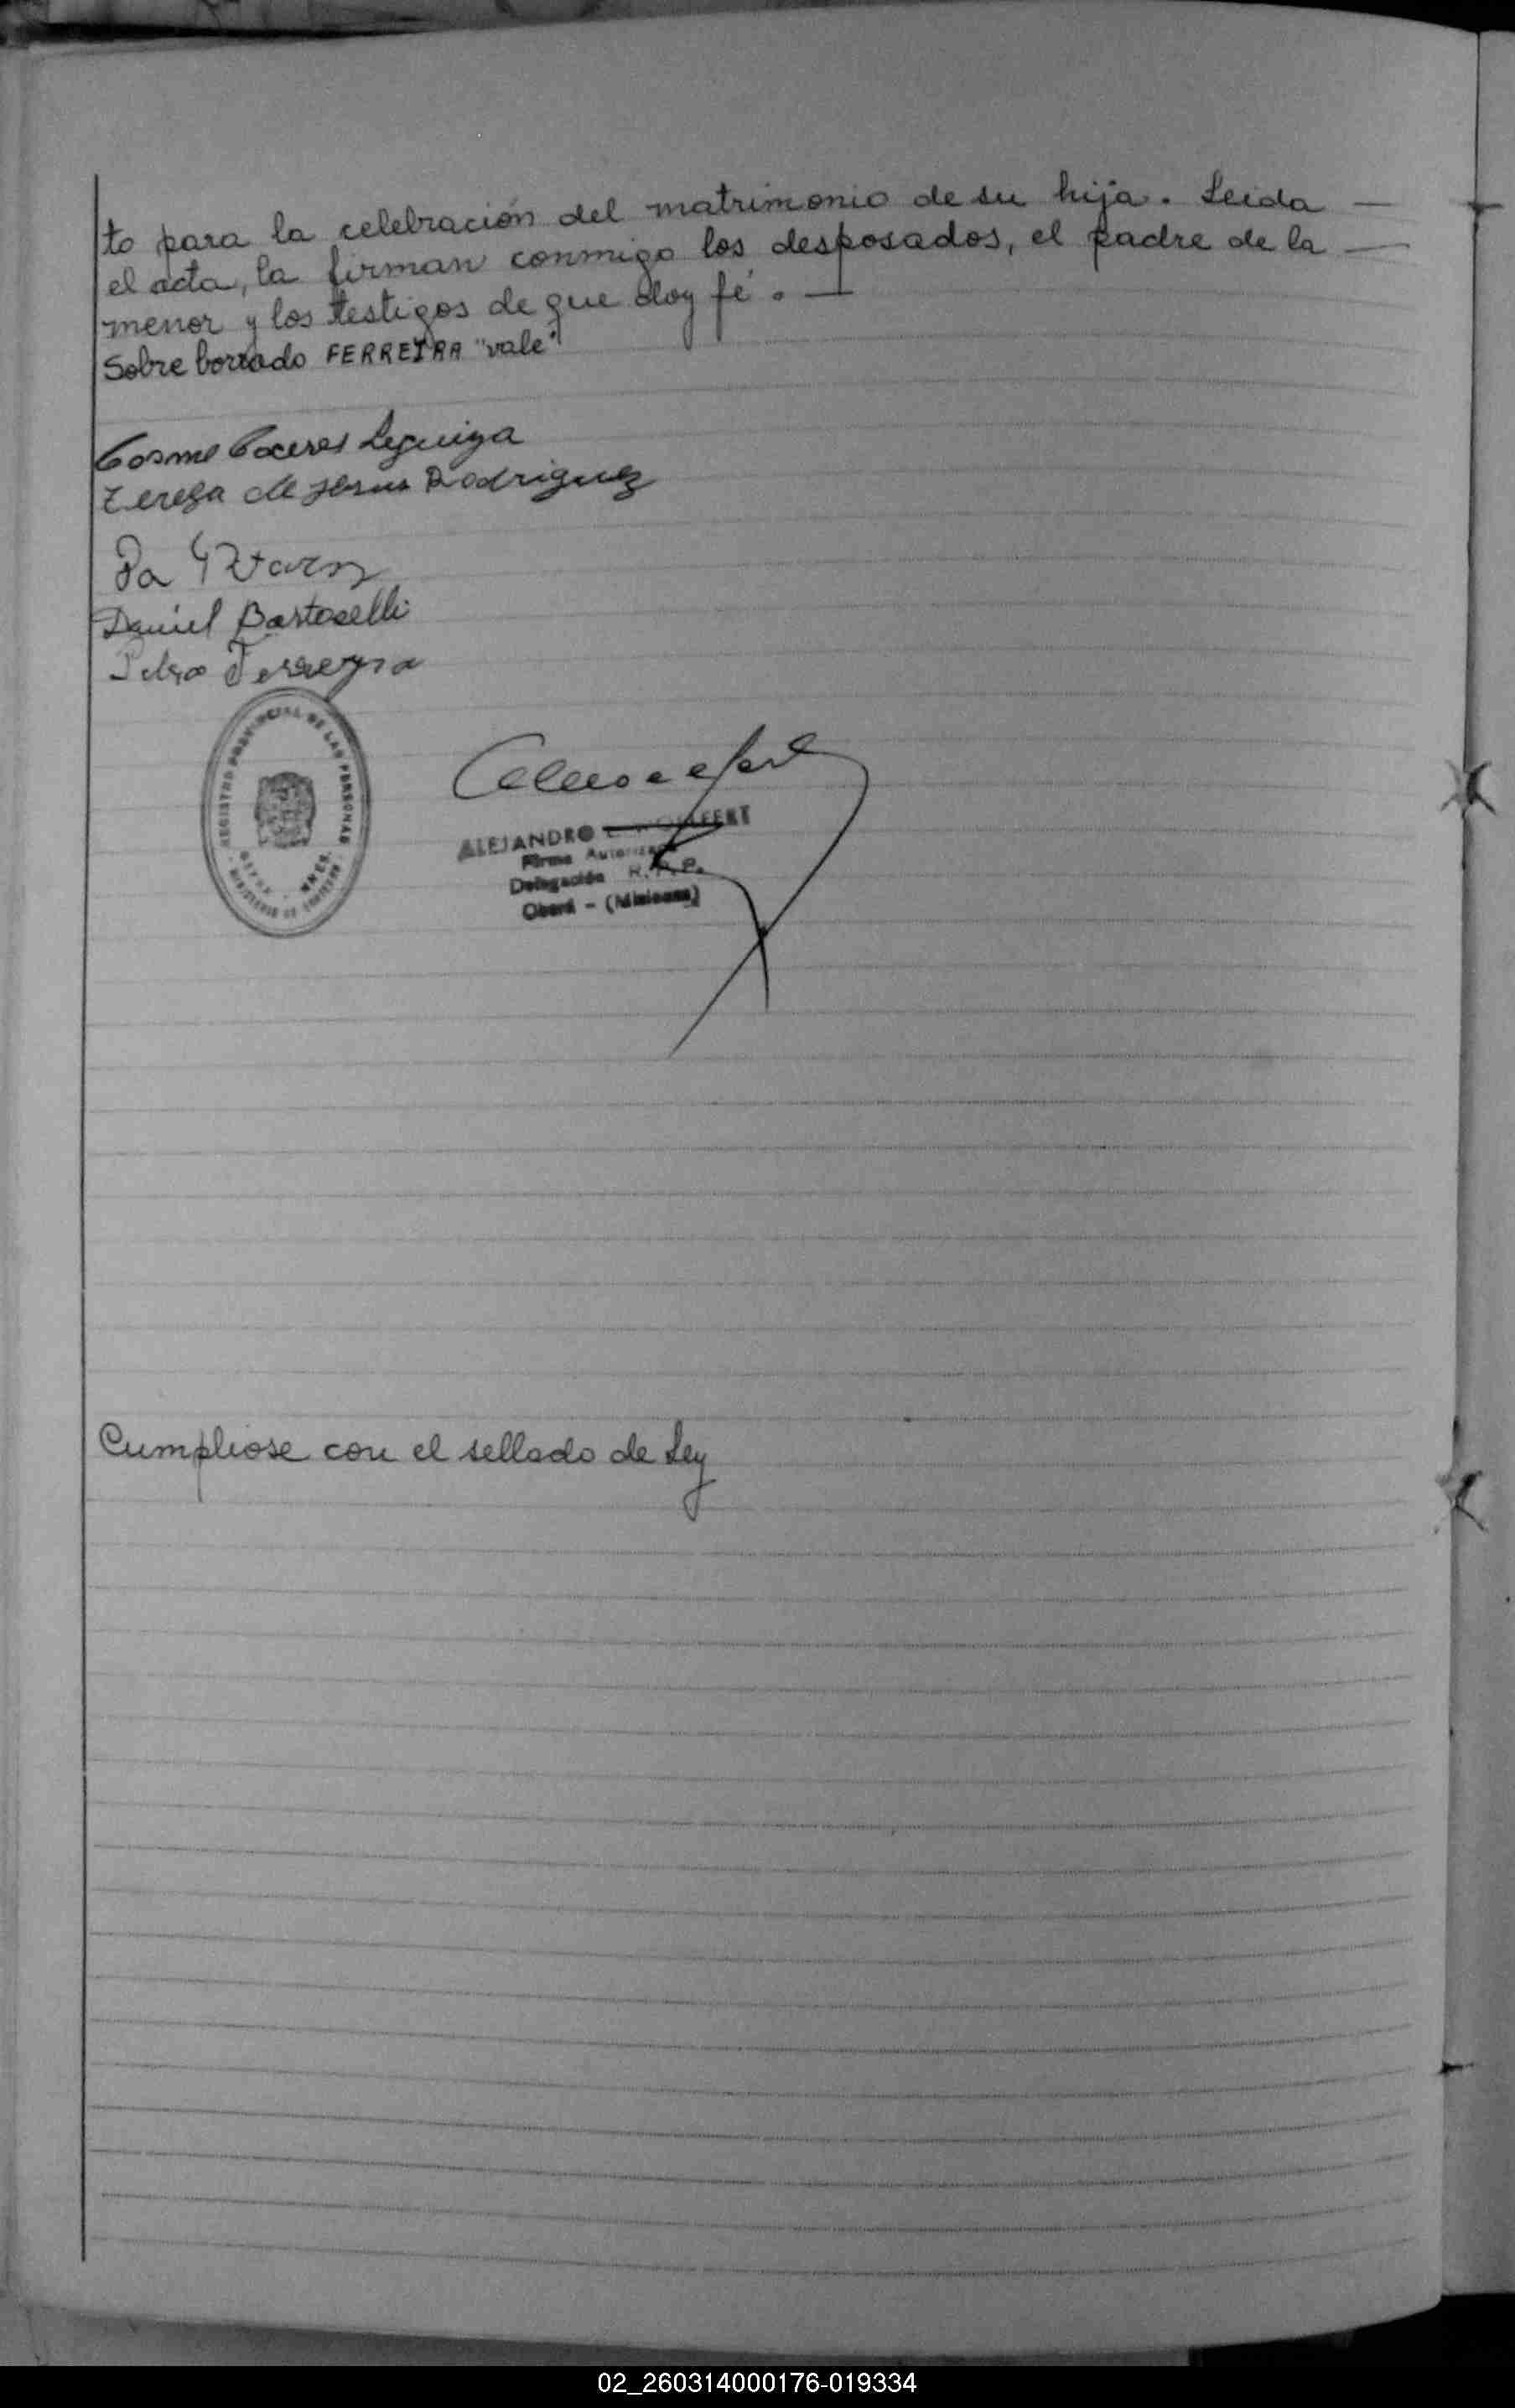 to para la celebración del matrimonio de su hija. Leida —
el acta, la firman conmigo los desposados, el padre de la —
menor y los testigos de que doy fé. —
Sobre borrado FERREYRA "vale"
Cosme Caceres Leguiza
Teresa de Jesus Rodriguez
Daniel Bartoselli
Ferreyra
REGISTRO PROVINCIAL DE LAS PERSONAS
MINISTERIO DE GOBIERNO
ALEJANDRO
Firma Autorizada
Delegación R.P.P.
Oberá - (Misiones)
Cumpliose con el sellado de Ley
02_260314000176-019334